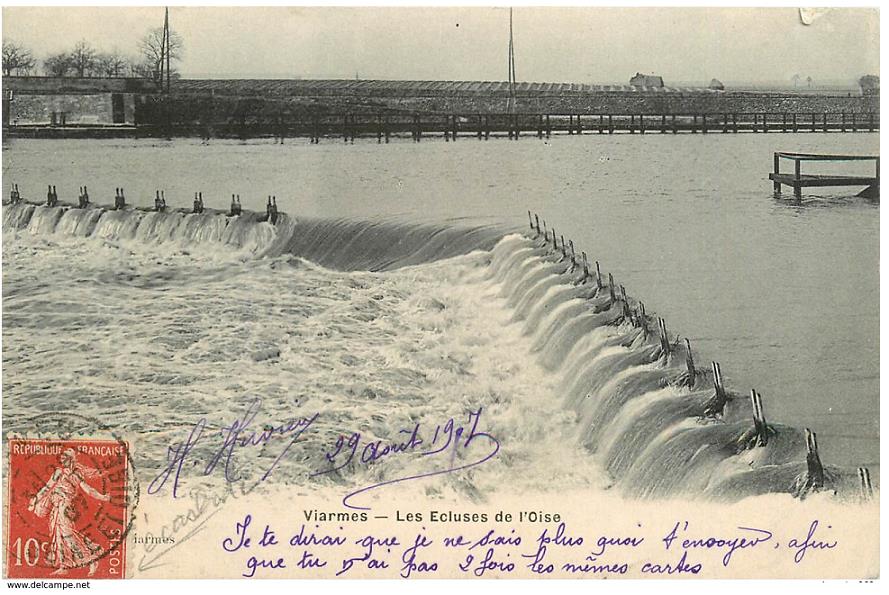 H. Havric
29 août 1907
RÉPUBLIQUE FRANÇAISE
10c
POSTES
Viarmes — Les Ecluses de l'Oise
iarmes
Je te dirai que je ne sais plus quoi t'envoyer, afin
que tu n'ai pas 2 fois les mêmes cartes
www.delcampe.net